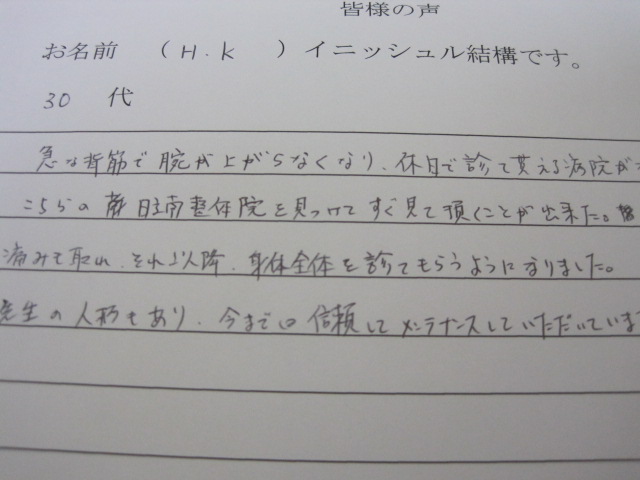 皆様の声
お名前 (H.K )イニッシュル結構です。
30 代
急な背筋で腕が上がらなくなり、休日で診て貰える病院が
こちらの 整体院を見つけてすぐ見て頂くことが出来た。
痛みも取れ、それ以降、身体全体を診てもらうようになりました。
先生の人柄もあり、今まで 信頼してメンテナンスしていただいています